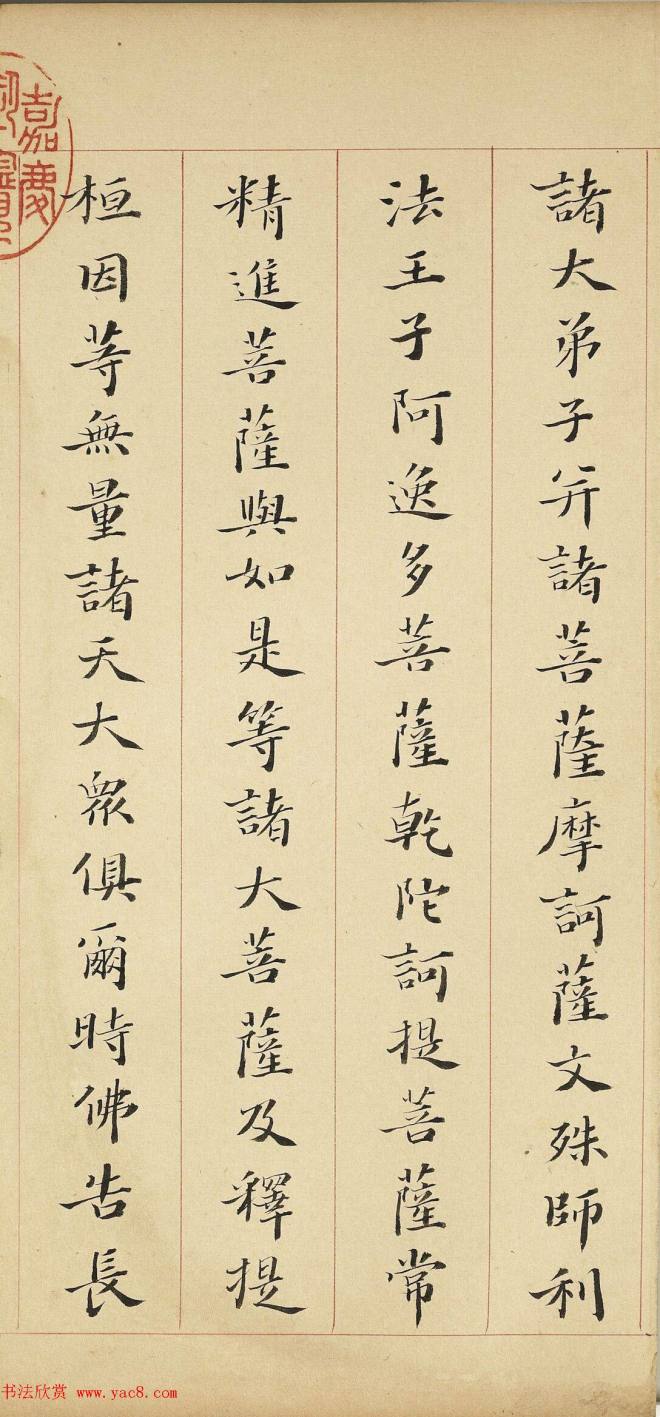 諸大弟子并諸菩薩摩訶薩文殊師利
法王子阿逸多菩薩乾陀訶提菩薩常
精進菩薩與如是等諸大菩薩及釋提
桓因等無量諸天大眾俱爾時佛告長
嘉慶
书法欣赏 www.yac8.com